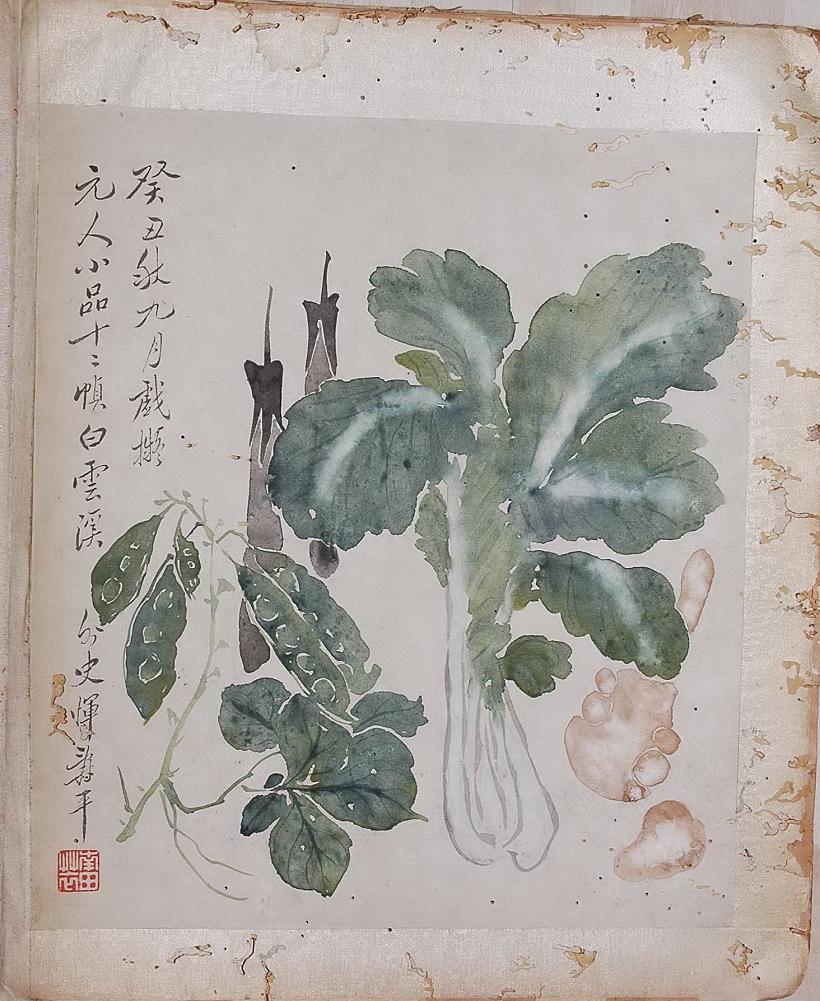 癸丑秋九月戲擬
元人小品十二幀白雲溪
外史惲壽平
南田草衣